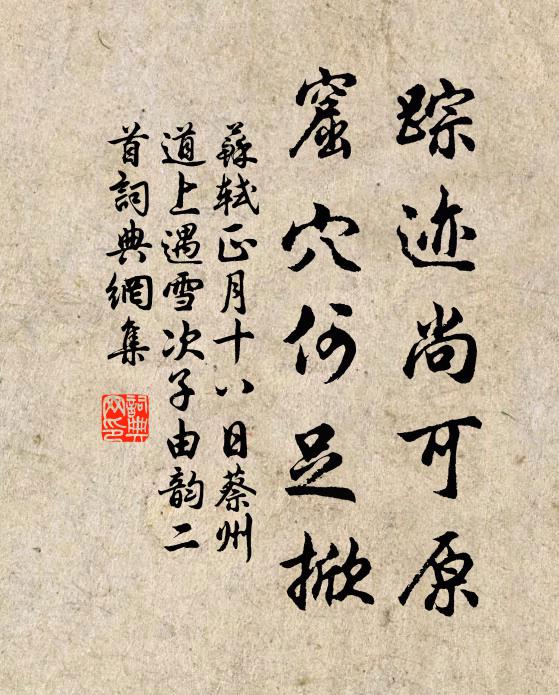 踪迹尚可原
窟穴何足掀
蘇軾正月十八日蔡州
道上遇雪次子由韵二
首詞典網集
詞典
网印